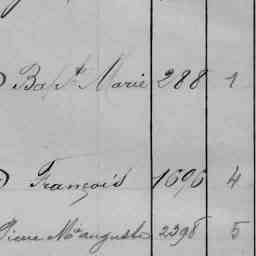 Bapt. Marie 288 1
François 1696 4
Pierre Me auguste 2398 5